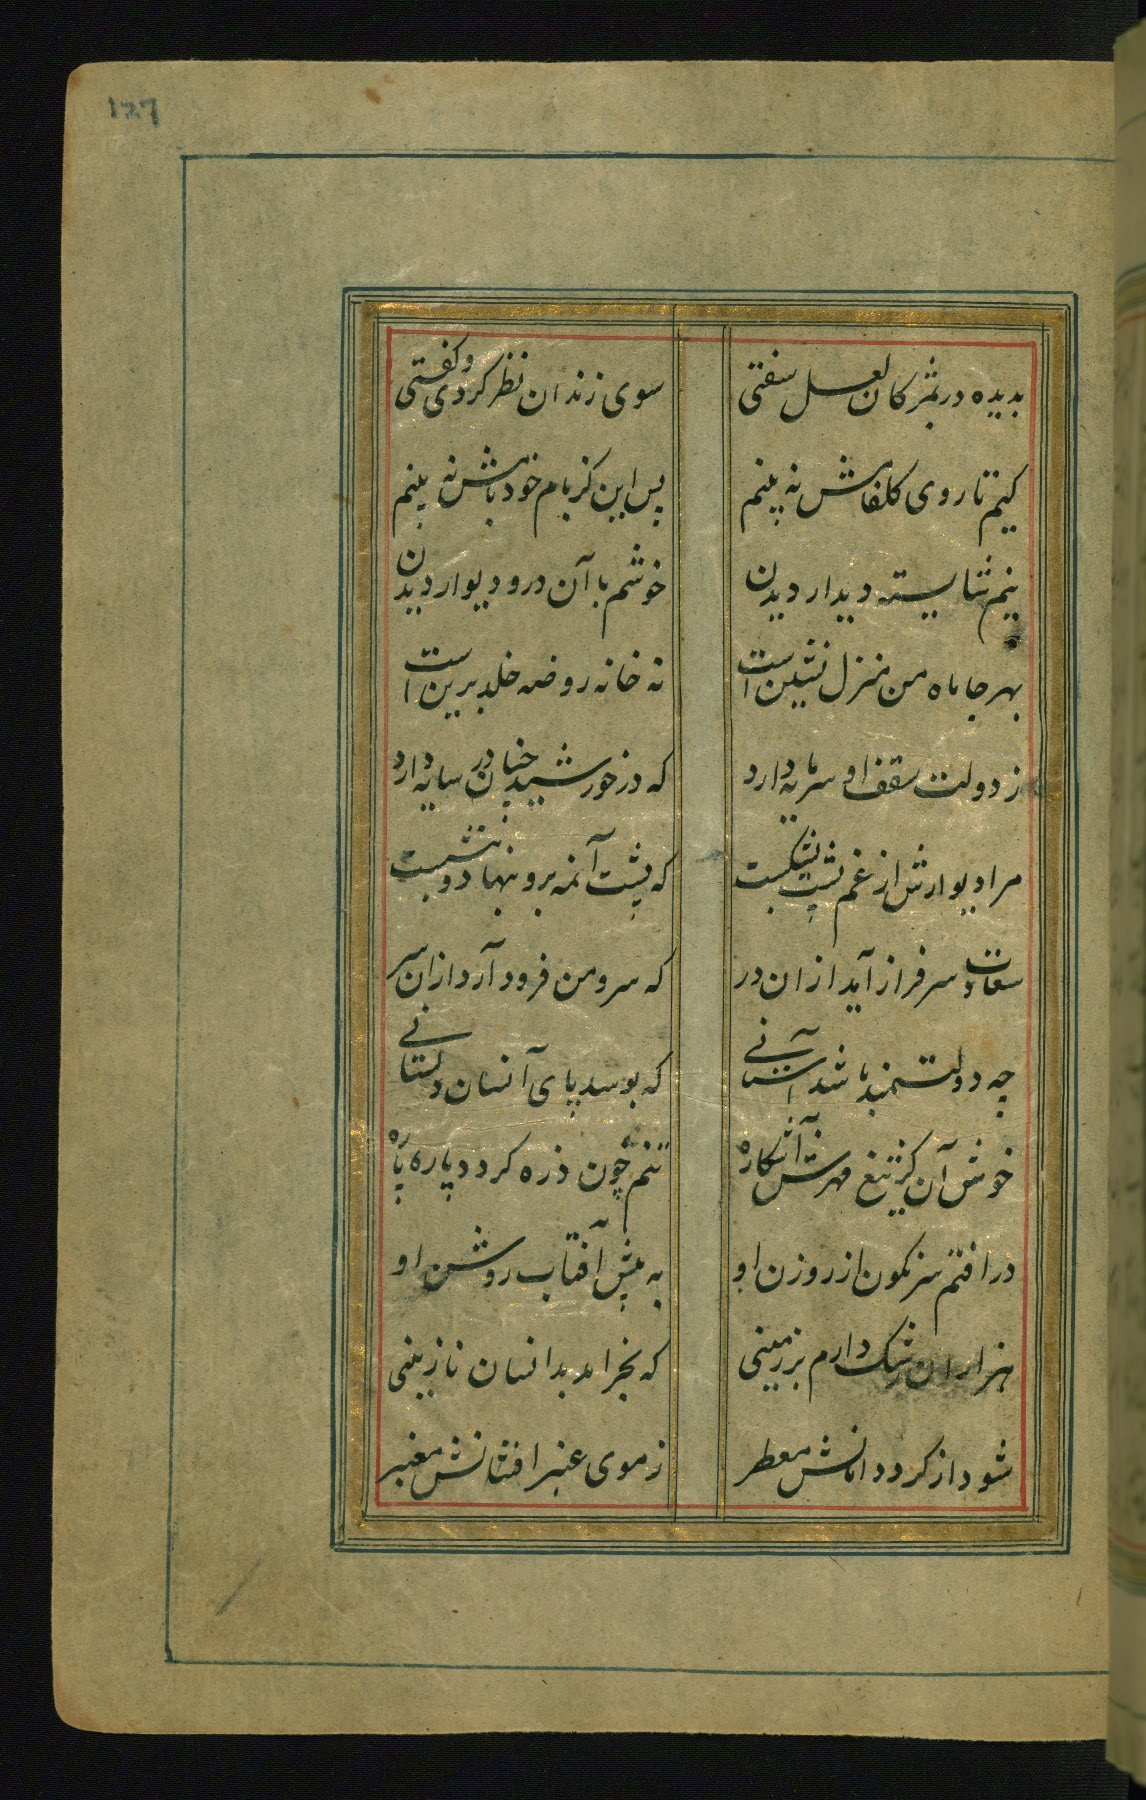 127
بدیده در بمژکان لعل سفتی سوی زندان نظر کردی و کفتی
کیم تا روی کلفامش نه بینم پس این کز بام خود بامش نه بینم
نیم شایسته دیدار دیدن خوشم با آن در و دیوار دیدن
بهر جا ماه من منزل نشین است نه خانه روضه خلد برین است
ز دولت سقف او سرمایه دارد که در خورشید چنان در سایه دارد
مرا دیوارش از غم پشت بشکست که پشت آنمه برو بنهاد و بنشست
سعادت سرفراز آید ازان در که سرو من فرود آرد ازان سر
چه دولتمند باشد آستانی که بوسد پای آنسان دلستانی
خوش آن کز تیغ مهرش آشکاره تنم چون ذره کردد پاره پاره
در افتم سرنکون از روزن او به پیش آفتاب روشن او
هزاران رشک دارم بر زمینی که بخرامد بدانسان نازنینی
شود از کرد دامانش معطر ز موی عنبر افشانش معنبر